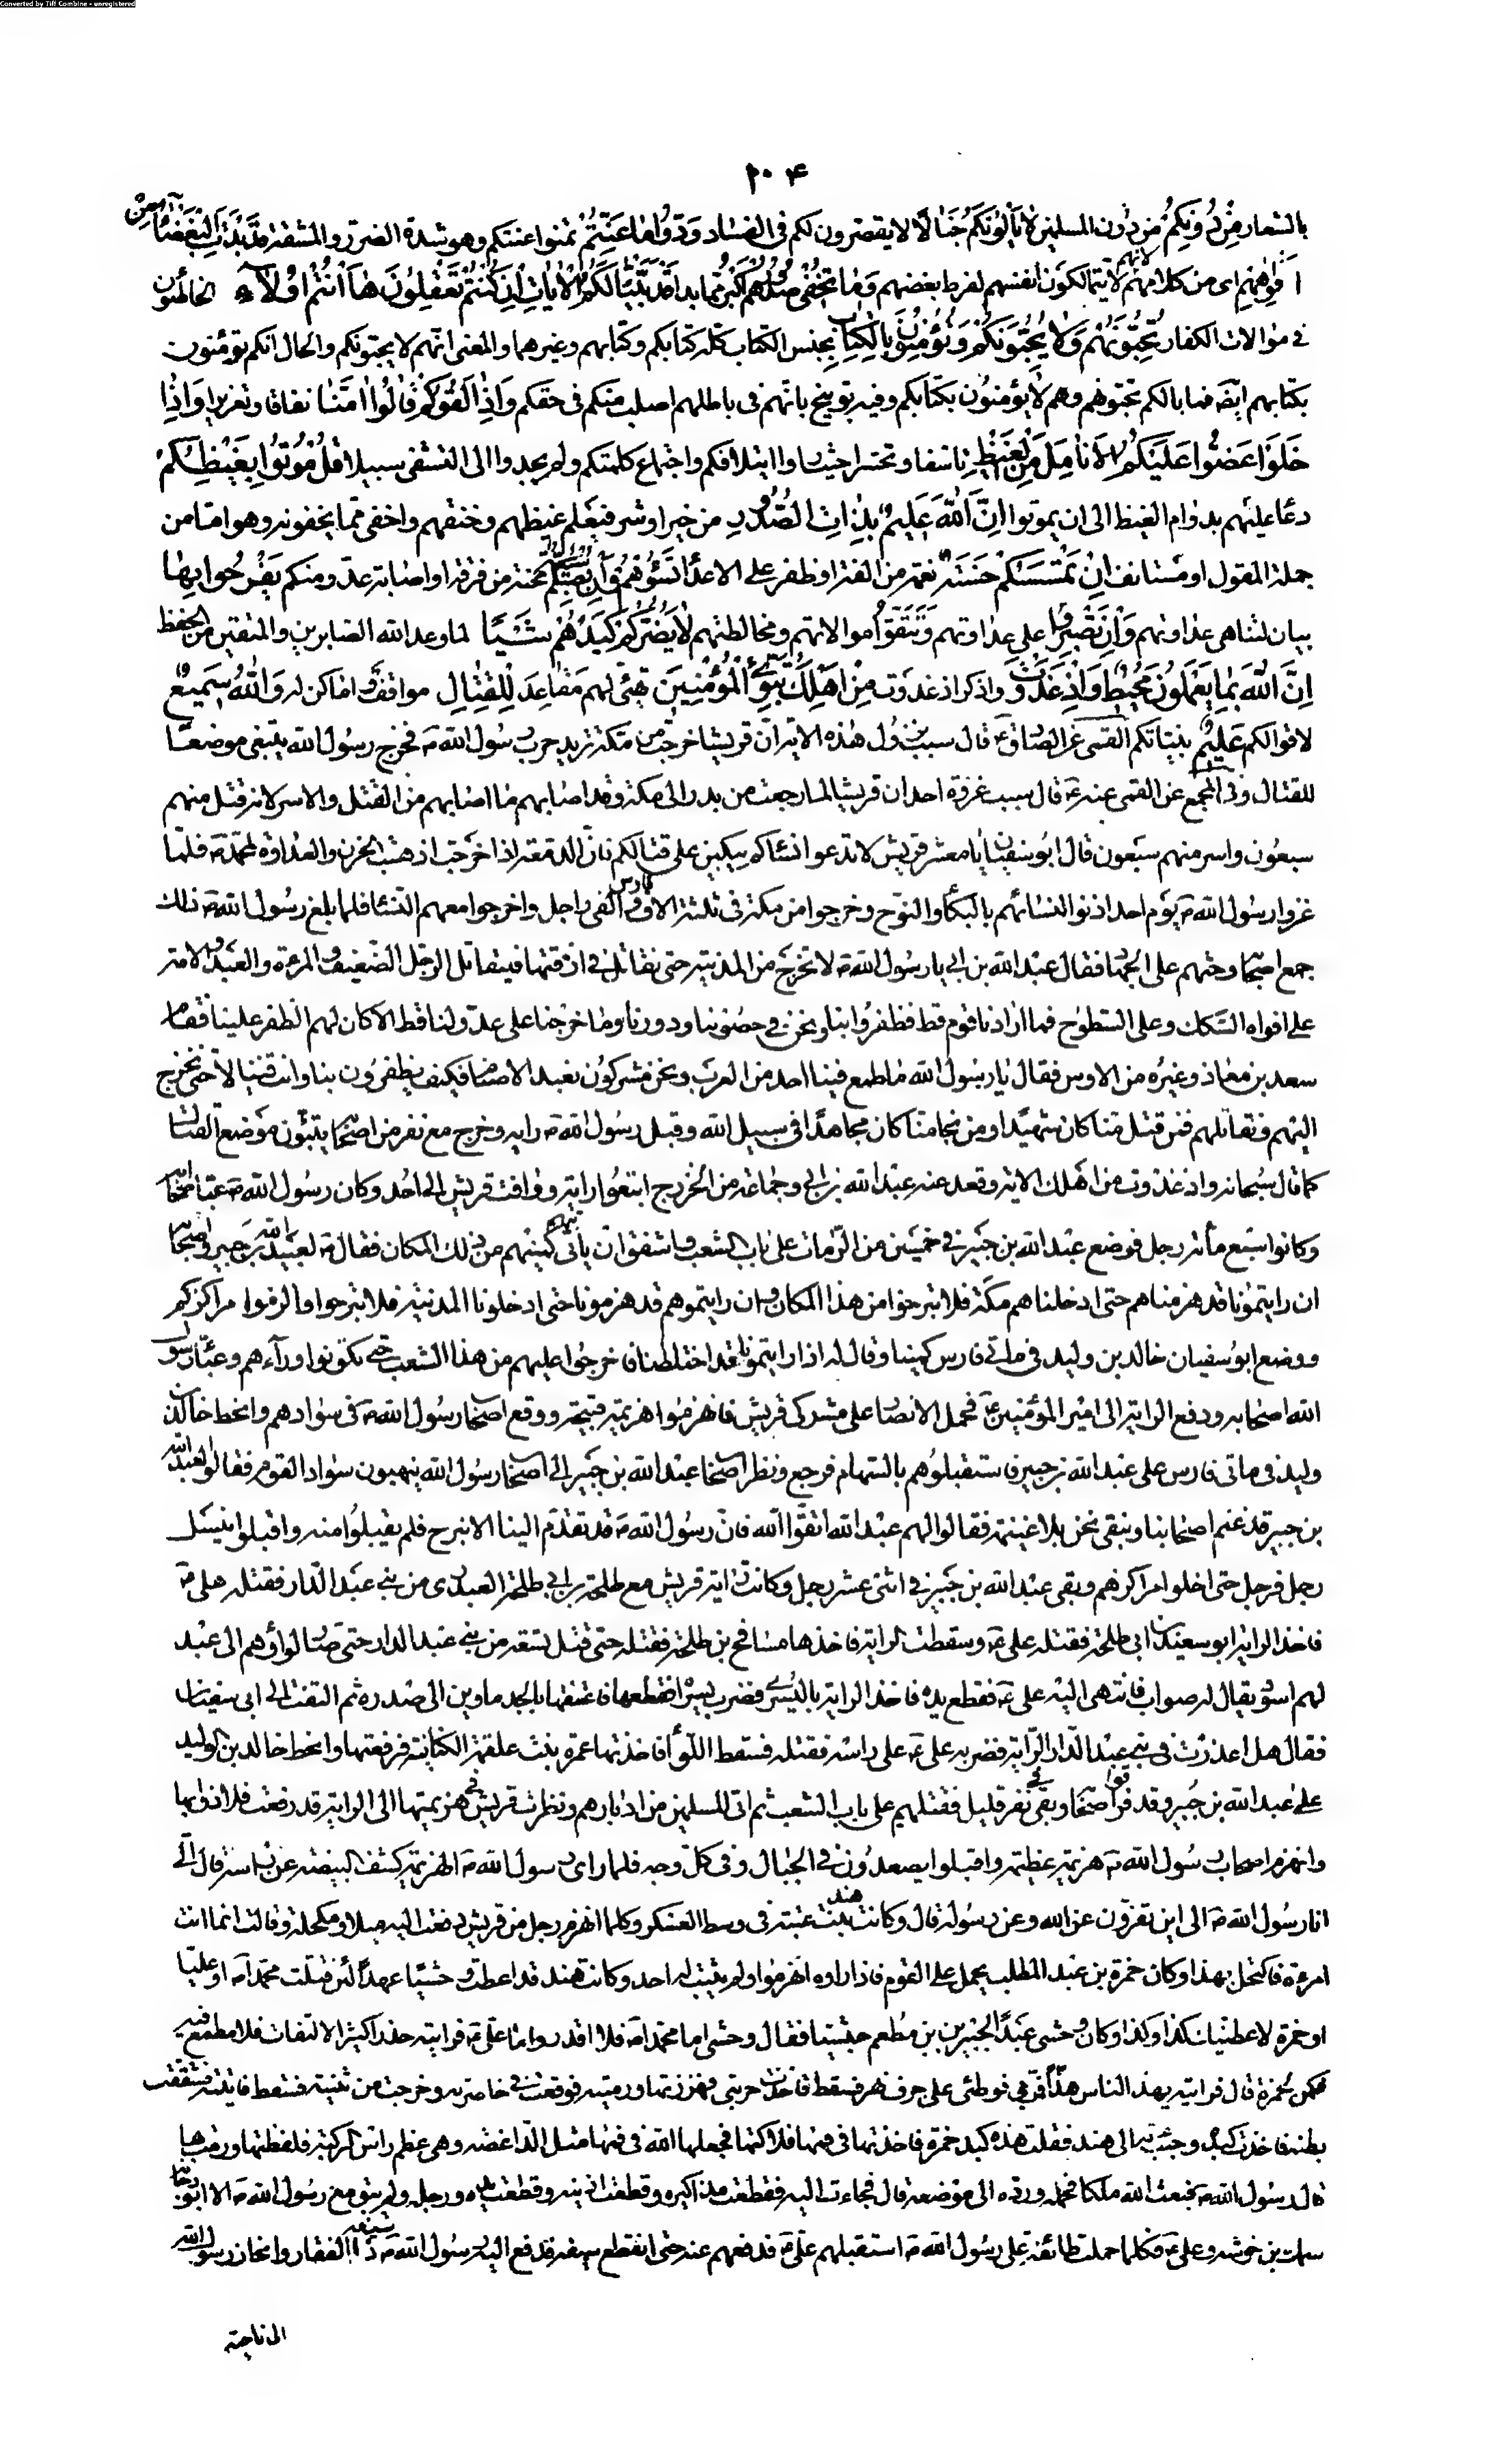 Converted by Tiff Combine - unregistered
۲۰۴
بالشعار مِنْ دُونِكُمْ من دون المسلمين لا يَأْلُونَكُمْ خَبالًا لا يقصرون لكم في الفساد وَدُّوا ما عَنِتُّمْ تمنوا عنتكم وهو شدة الضرر والمشقة قَدْ بَدَتِ الْبَغْضاءُ مِنْ
أَفْواهِهِمْ اى من كلامهم لانهم لا يتمالكون انفسهم لفرط بغضهم وَما تُخْفِي صُدُورُهُمْ أَكْبَرُ مما بدا قَدْ بَيَّنَّا لَكُمُ الْآياتِ إِنْ كُنْتُمْ تَعْقِلُونَ ها أَنْتُمْ أُولاءِ الخاطئون
في موالات الكفار تُحِبُّونَهُمْ وَلا يُحِبُّونَكُمْ وَتُؤْمِنُونَ بِالْكِتابِ بجنس الكتاب كله كتابكم وكتابهم وغيرهما والمعنى انهم لا يحبونكم والحال انكم تؤمنون
بكتابهم ايضه فما بالكم تحبونهم وهم لا يؤمنون بكتابكم وفيه توبيخ بانهم في باطلهم اصلب منكم في حقكم وَإِذا لَقُوكُمْ قالُوا آمَنَّا نفاقا وتغريرا وَإِذا
خَلَوْا عَضُّوا عَلَيْكُمُ الْأَنامِلَ مِنَ الْغَيْظِ تاسفا وتحسرا حيث راوا ايتلافكم واجتماع كلمتكم ولم يجدوا الى التشفى سبيلا قُلْ مُوتُوا بِغَيْظِكُمْ
دعا عليهم بدوام الغيظ الى ان يموتوا إِنَّ اللَّهَ عَلِيمٌ بِذاتِ الصُّدُورِ من خير او شر فيعلم غيظهم وخنقهم واخفى مما يخفونه وهو اما من
جملة المقول او مستانف إِنْ تَمْسَسْكُمْ حَسَنَةٌ نعمة من الفة او ظفر على الاعداء تَسُؤْهُمْ وَإِنْ تُصِبْكُمْ سَيِّئَةٌ محنة من فرقة او اصابة عدو منكم يَفْرَحُوا بِها
بيان لتناهى عداوتهم وَإِنْ تَصْبِرُوا على عداوتهم وَتَتَّقُوا موالاتهم ومخالطتهم لا يَضُرُّكُمْ كَيْدُهُمْ شَيْئًا لما وعد الله الصابرين والمتقين من الحفظ
إِنَّ اللَّهَ بِما يَعْمَلُونَ مُحِيطٌ وَإِذْ غَدَوْتَ واذكر اذ غدوت مِنْ أَهْلِكَ تُبَوِّئُ الْمُؤْمِنِينَ تهيئ لهم مَقاعِدَ لِلْقِتالِ مواقف واماكن له وَاللَّهُ سَمِيعٌ
لاقوالكم عَلِيمٌ بنياتكم القمى عن الصادق ع قال سبب نزول هذه الاية ان قريشا خرجت من مكة تريد حرب رسول الله ص فخرج رسول الله يبتغى موضعا
للقتال وفي المجمع عن القمى عنه ع قال سبب غزوة احد ان قريشا لما رجعت من بدر الى مكة وقد اصابهم ما اصابهم من القتل والاسر لانه قتل منهم
سبعون واسر منهم سبعون قال ابو سفيان يا معشر قريش لا تدعوا نساءكم يبكين على قتلاكم فان الدمعة اذا خرجت اذهبت الحزن والعداوة لمحمد ص فلما
غزوا رسول الله ص يوم احد اذنوا لنسائهم بالبكاء والنوح وخرجوا من مكة في ثلثة الاف فارس والفى راجل واخرجوا معهم النساء فلما بلغ رسول الله ص ذلك
جمع اصحابه وحثهم على الجهاد فقال عبد الله بن ابي يا رسول الله ص لا تخرج من المدينة حتى نقاتل في ازقتها فيقاتل الرجل الضعيف والمرءة والعبد والامة
على افواه السكك وعلى السطوح فما ارادنا قوم قط فظفروا بنا ونحن في حصوننا ودورنا وما خرجنا على عدو لنا قط الا كان لهم الظفر علينا فقام
سعد بن معاذ وغيره من الاوس فقال يا رسول الله ما طمع فينا احد من العرب ونحن مشركون نعبد الاصنام فكيف يظفرون بنا وانت فينا لا حتى نخرج
اليهم ونقاتلهم فمن قتل منا كان شهيدا ومن نجا منا كان مجاهدا في سبيل الله وقبل رسول الله ص رايه وخرج مع نفر من اصحابه يتبؤن موضع القتال
كما قال سبحانه واذ غدوت من اهلك الاية وقعد عنه عبد الله بن ابي وجماعة من الخزرج ابتغوا رايه ووافت قريش الى احد وكان رسول الله ص عبا اصحابه
وكانوا سبع مأة رجل فوضع عبد الله بن جبير في خمسين من الرماة على باب الشعب واشفق ان ياتى كمينهم من ذلك المكان فقال ص لعبد الله بن جبير واصحابه
ان رايتمونا قد هزمناهم حتى ادخلناهم مكة فلا تبرحوا من هذا المكان وان رايتموهم قد هزمونا حتى ادخلونا المدينة فلا تبرحوا والزموا مراكزكم
ووضع ابو سفيان خالد بن وليد في ماتي فارس كمينا وقال له اذا رايتمونا قد اختلطنا فاخرجوا عليهم من هذا الشعب حتى تكونوا وراءهم وعبا رسول
الله اصحابه ودفع الراية الى امير المؤمنين ع فحمل الانصار على مشركى قريش فانهزموا هزيمة قبيحة ووقع اصحاب رسول الله ص في سوادهم وانحط خالد بن
وليد في ماتى فارس على عبد الله بن جبير فاستقبلوهم بالسهام فرجع ونظر اصحاب عبد الله بن جبير الى اصحاب رسول الله ينهبون سواد القوم فقالوا لعبد الله
بن جبير قد غنم اصحابنا ونبقى نحن بلا غنيمة فقال لهم عبد الله اتقوا الله فان رسول الله ص قد تقدم الينا الا نبرح فلم يقبلوا منه واقبلوا ينسل
رجل فرجل حتى اخلوا مراكزهم وبقى عبد الله بن جبير في اثنى عشر رجل وكانت راية قريش مع طلحة بن ابي طلحة العبدرى من بنى عبد الدار فقتله على ع
فاخذ الراية ابو سعيد بن ابى طلحة فقتله على ع وسقطت الراية فاخذها مسافح بن طلحة فقتله حتى قتل تسعة من بنى عبد الدار حتى صار لواؤهم الى عبد
لهم اسود يقال له صواب فانتهى اليه على ع فقطع يده فاخذ الراية باليسرى فضرب يسراه فقطعها فاعتنقها بالجذماوين الى صدره ثم التفت الى ابى سفيان
فقال هل اعذرت في بنى عبد الدار الراية فضربه على ع على راسه فقتله فسقط اللواء فاخذتها عمرة بنت علقمة الكنانية فرفعتها وانحط خالد بن الوليد
على عبد الله بن جبير وقد فر اصحابه وبقى في نفر قليل فقتلهم على باب الشعب ثم اتى المسلمين من ادبارهم ونظرت قريش في هزيمتها الى الراية قد رفعت فلاذوا بها
وانهزم اصحاب رسول الله ص هزيمة عظيمة واقبلوا يصعدون في الجبال وفي كل وجه فلما راى رسول الله ص الهزيمة كشف البيضة عن راسه قال الي
انا رسول الله ص الى اين تفرون عن الله وعن رسوله قال وكانت هند بنت عتبة في وسط العسكر وكلما انهزم رجل من قريش دفعت اليه ميلا ومكحلة وقالت انما انت
امرءة فاكتحل بهذا وكان حمزة بن عبد المطلب يحمل على القوم فاذا راوه انهزموا ولم يثبت له احد وكانت هند قد اعطت وحشيا عهدا لئن قتلت محمدا ص او عليا
او حمزة لاعطينك كذا وكذا وكان وحشى عبدا لجبير بن مطعم حبشيا فقال وحشى اما محمد ص فلا اقدر واما على ع فرايته حذرا كثير الالتفات فلا مطمع فيه
فكمن لحمزة قال فرايته يهد الناس هدا فمر بي فوطئ على جرف نهر فسقط فاخذت حربتى فهززتها ورميته فوقعت في خاصرته وخرجت من ثنيته فسقط فاتيته فشققت
بطنه فاخذت كبده وجئت به الى هند فقلت هذه كبد حمزة فاخذتها في فمها فلاكتها فجعلها الله في فمها مثل الداغضه وهى عظم راس الركبة فلفظتها ورمت بها
قال رسول الله ص فبعث الله ملكا فحمله ورده الى موضعه قال فجاءت اليه فقطعت مذاكيره وقطعت اذنيه وقطعت يده ورجله ولم يبق مع رسول الله ص الا ابو دجانة
سماك بن خرشه وعلى ع فكلما حملت طائفة على رسول الله ص استقبلهم على ع فدفعهم عنه حتى انقطع سيفه فدفع اليه رسول الله ص سيفه ذا الفقار وانحاز رسول الله
الى ناحية